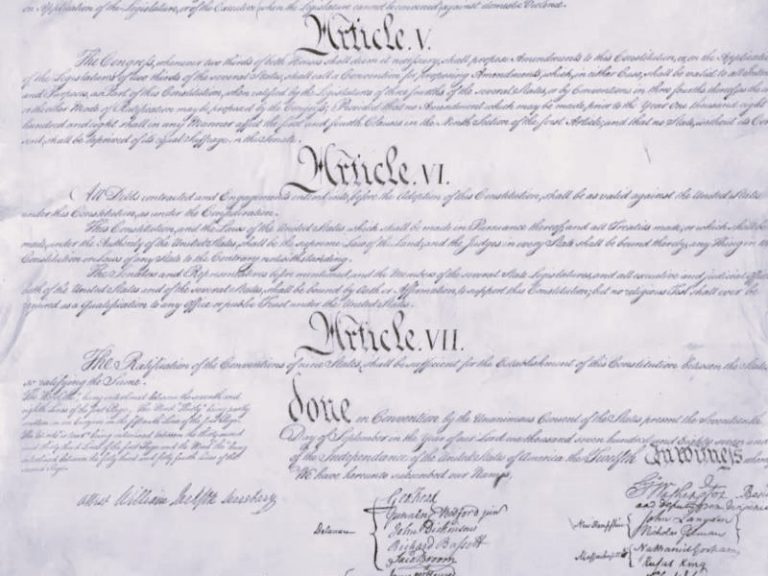 on Application of the Legislature, or of the Executive (when the Legislature cannot be convened) against domestic Violence.
Article. V.
The Congress, whenever two thirds of both Houses shall deem it necessary, shall propose Amendments to this Constitution, or, on the Application
of the Legislatures of two thirds of the several States, shall call a Convention for proposing Amendments, which, in either Case, shall be valid to all Intents
and Purposes, as Part of this Constitution, when ratified by the Legislatures of three fourths of the several States, or by Conventions in three fourths thereof, as the one
or the other Mode of Ratification may be proposed by the Congress; Provided that no Amendment which may be made prior to the Year One thousand eight
hundred and eight shall in any Manner affect the first and fourth Clauses in the Ninth Section of the first Article; and that no State, without its Con
sent, shall be deprived of its equal Suffrage in the Senate.
Article. VI.
All Debts contracted and Engagements entered into, before the Adoption of this Constitution, shall be as valid against the United States
under this Constitution, as under the Confederation.
This Constitution, and the Laws of the United States which shall be made in Pursuance thereof; and all Treaties made, or which shall be
made, under the Authority of the United States, shall be the supreme Law of the Land; and the Judges in every State shall be bound thereby, any Thing in the
Constitution or Laws of any State to the Contrary notwithstanding.
The Senators and Representatives before mentioned, and the Members of the several State Legislatures, and all executive and judicial
both of the United States and of the several States, shall be bound by Oath or Affirmation, to support this Constitution; but no religious Test shall ever be
required as a Qualification to any Office or public Trust under the United States.
Article. VII.
The Ratification of the Conventions of nine States, shall be sufficient for the Establishment of this Constitution between the States
so ratifying the Same.
The Word "the", being interlined between the seventh and
eighth Lines of the first Page, The Word "Thirty" being partly
written on an Erazure in the fifteenth Line of the first Page,
The Words "is tried" being interlined between the thirty second
and thirty third Lines of the first Page and the Word "the" being
interlined between the forty third and forty fourth Lines of the
second Page.
done in Convention by the Unanimous Consent of the States present the Seventeenth
Day of September in the Year of our Lord one thousand seven hundred and Eighty seven and
of the Independance of the United States of America the Twelfth In Witness
We have hereunto subscribed our Names,
Attest William Jackson Secretary
Delaware
Geo: Read
Gunning Bedford jun
John Dickinson
Richard Bassett
Jaco: Broom
G. Washington
and deputy from Virginia
New Hampshire
John Langdon
Nicholas Gilman
Massachusetts
Nathaniel Gorham
Rufus King